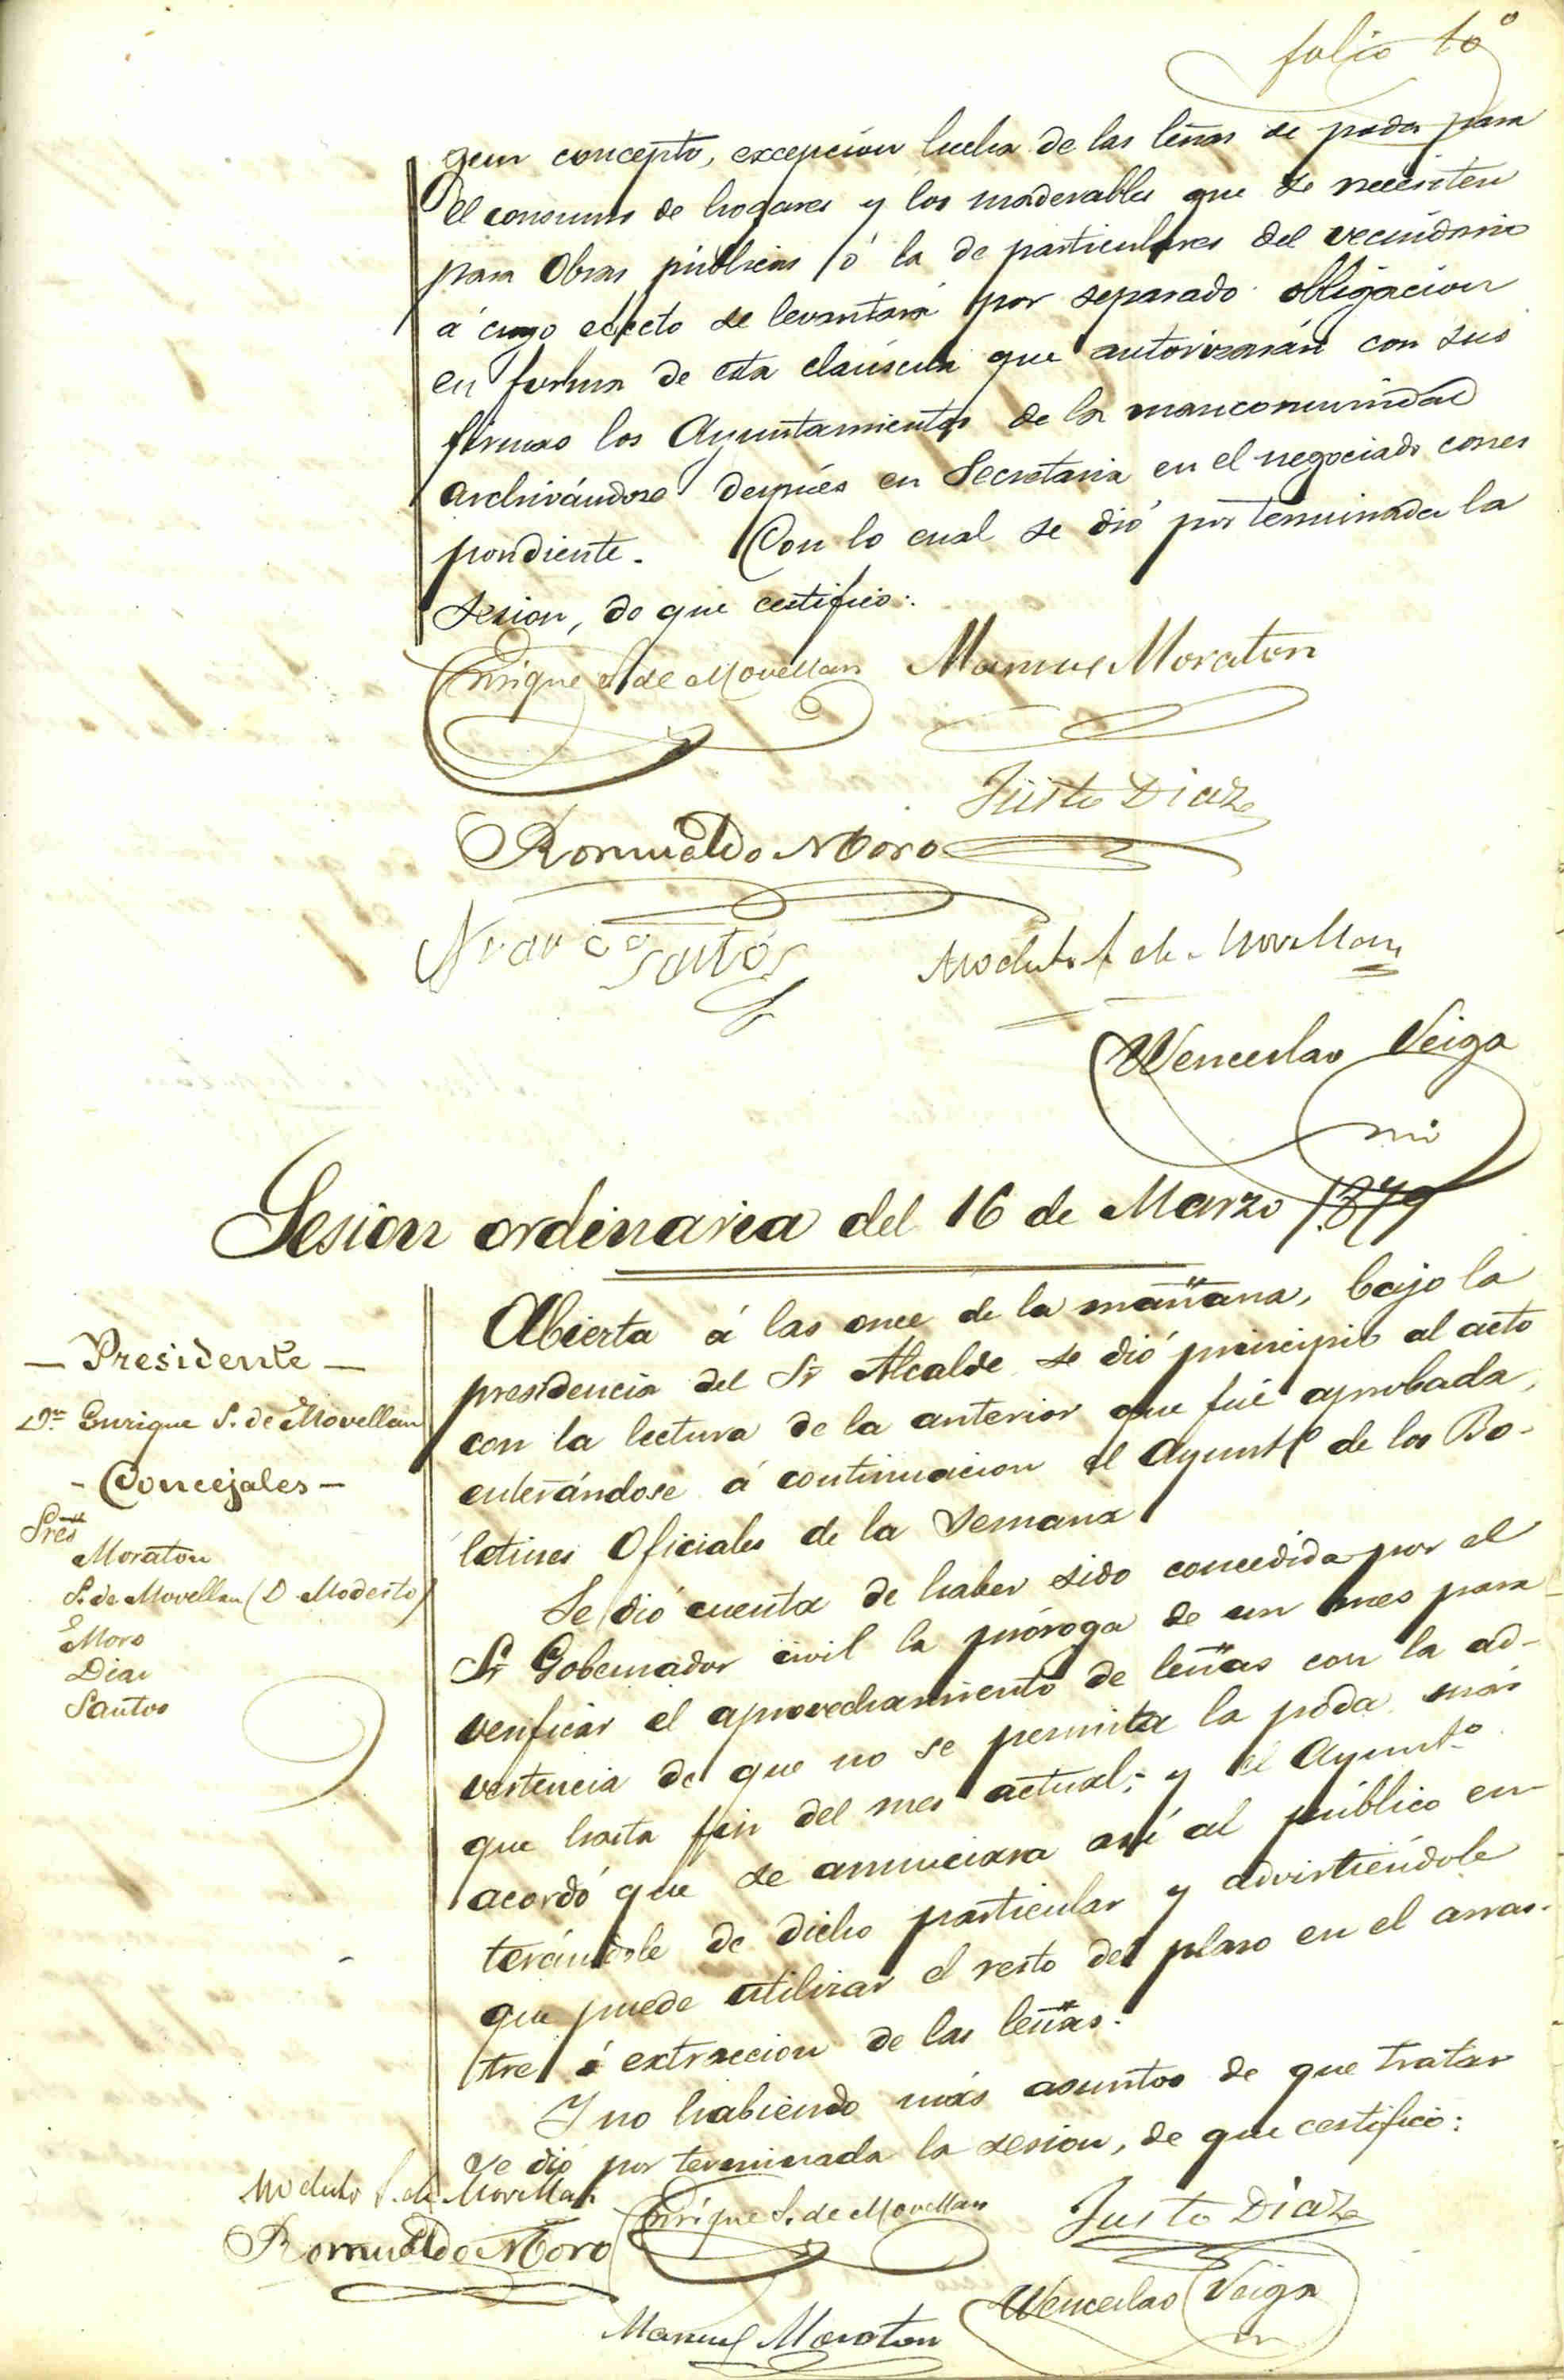 folio 10º
gun concepto, excepcion hecha de las leñas de poda para
el consumo de hogares y los maderables que se necesiten
para Obras públicas ó la de particulares del vecindario
á cuyo efecto se levantará por separado obligacion
en forma de esta claúsula que autorizarán con sus
firmas los Ayuntamientos de la mancomunidad
archivándose despues en Secretaria en el negociado corres
pondiente. Con lo cual se dió por terminada la
sesion, de que certifico:
Enrique S. de Movellan Manuel Moraton
Justo Diaz
Romualdo Moro
Santos
Modesto S. de Movellan
Wenceslao Veiga
Sesion ordinaria del 16 de Marzo 1879
— Presidente —
Dn. Enrique S. de Movellan
- Concejales -
Sres
Moraton
S. de Movellan (D. Modesto)
Moro
Diaz
Santos
Abierta á las once de la mañana, bajo la
presidencia del Sr Alcalde se dió principio al acto
con la lectura de la anterior que fué aprobada,
enterándose á continuacion el Ayuntº de los Bo-
letines Oficiales de la semana
Se dió cuenta de haber sido concedida por el
Sr Gobernador civil la próroga de un mes para
verificar el aprovechamiento de leñas con la ad-
vertencia de que no se permita la poda más
que hasta fin del mes actual; y el Ayuntº
acordó que se anunciara así al público en-
terándole de dicho particular y advirtiéndole
que puede utilizar el resto del plazo en el arras-
tre é extraccion de las leñas.
Y no habiendo más asuntos de que tratar
se dió por terminada la sesion, de que certifico:
Modesto S. de Movellan Enrique S. de Movellan Justo Diaz
Romualdo Moro
Wenceslao Veiga
Manuel Moraton